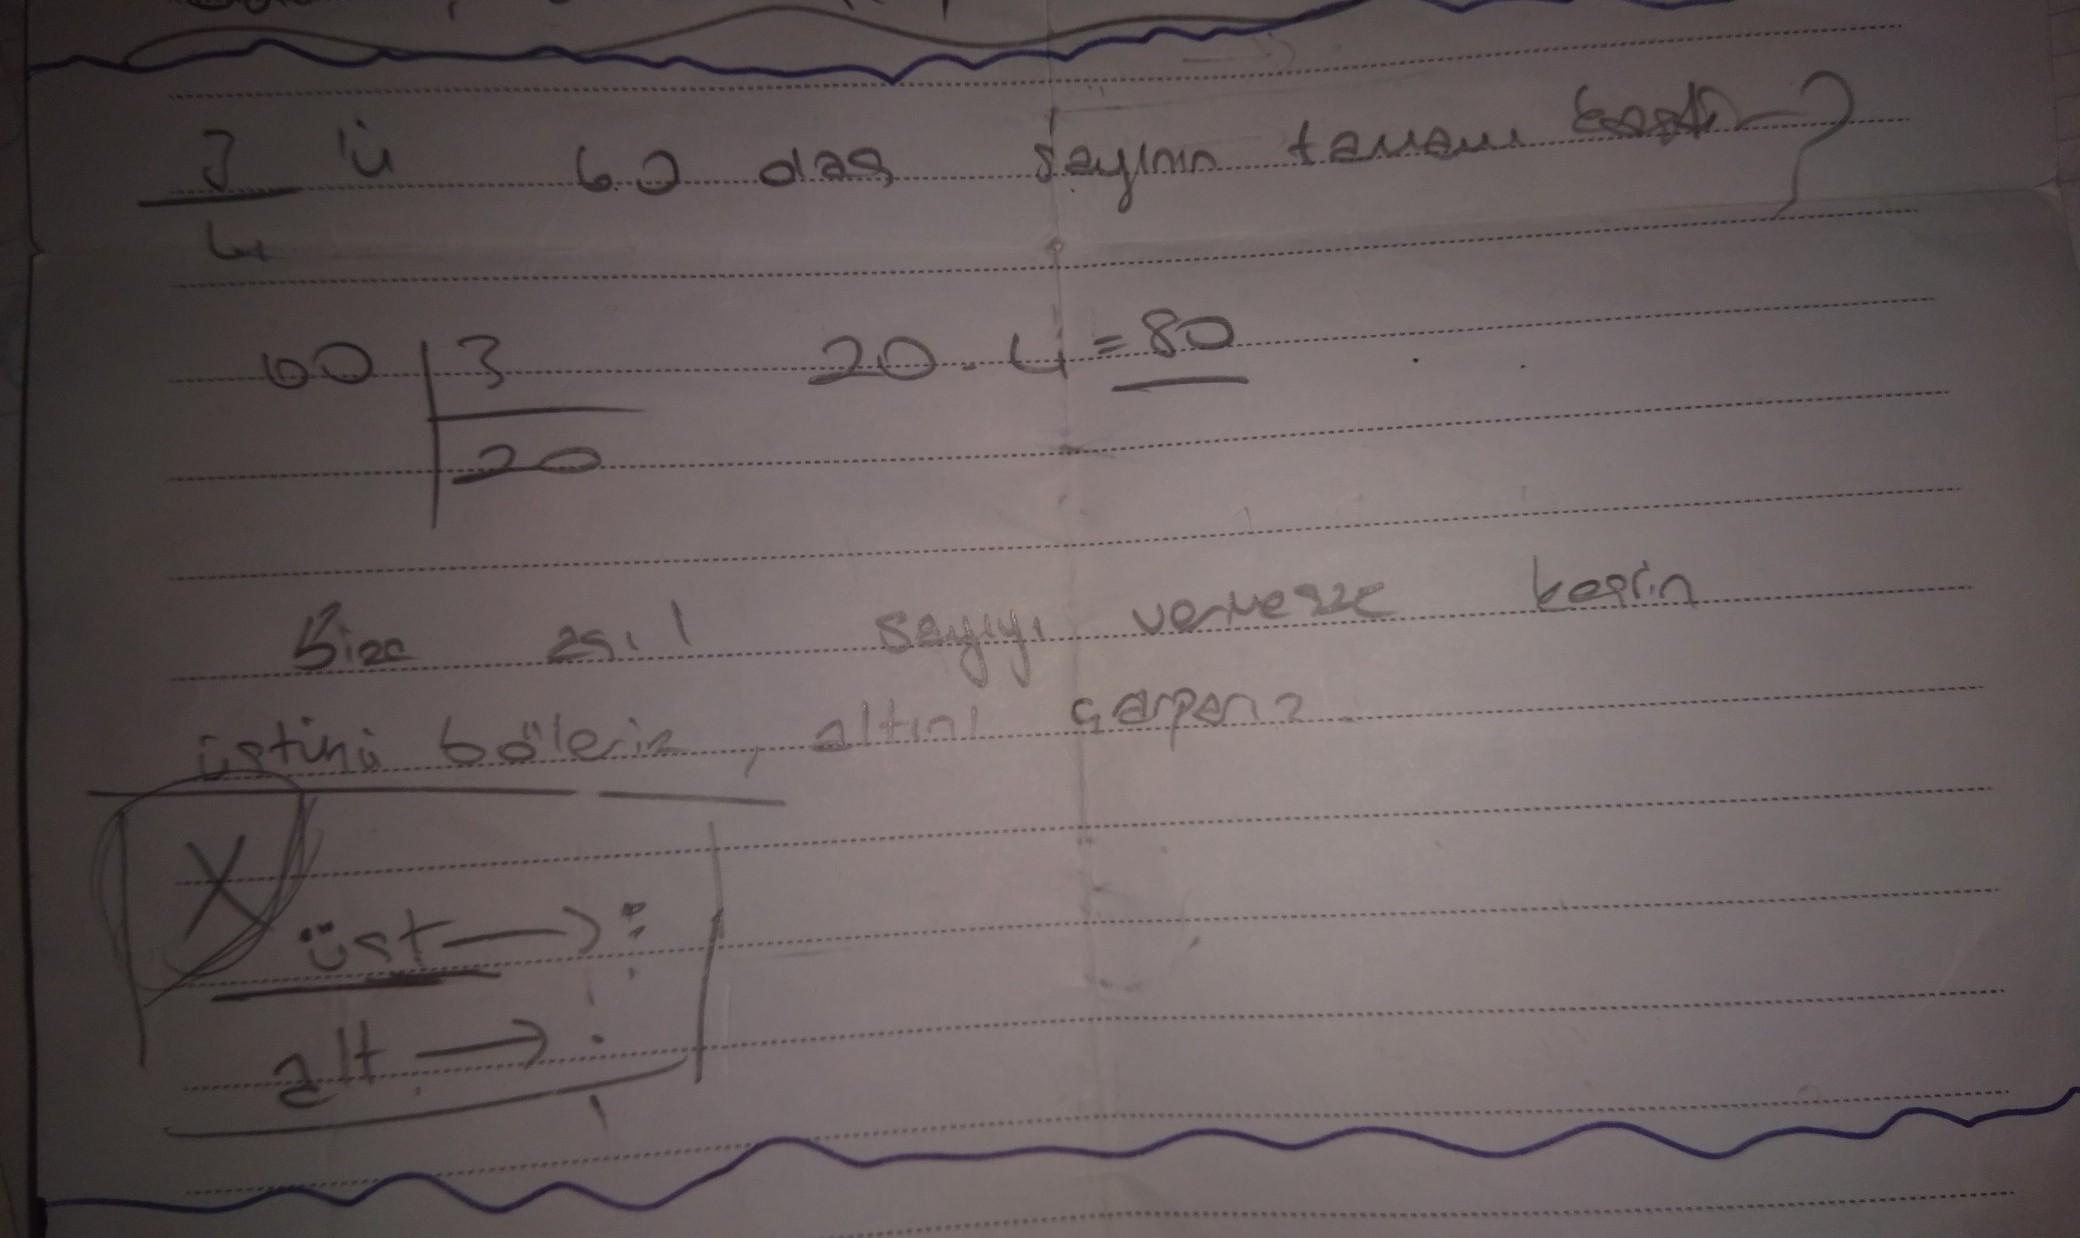 3/4 'ü 60 olan sayının tamamı kaçtır?
60 | 3
20
20 . 4 = 80
Bize asıl sayıyı vermezse kesrin
üstünü böleriz, altını çarparız.
X
üst → :
alt → .